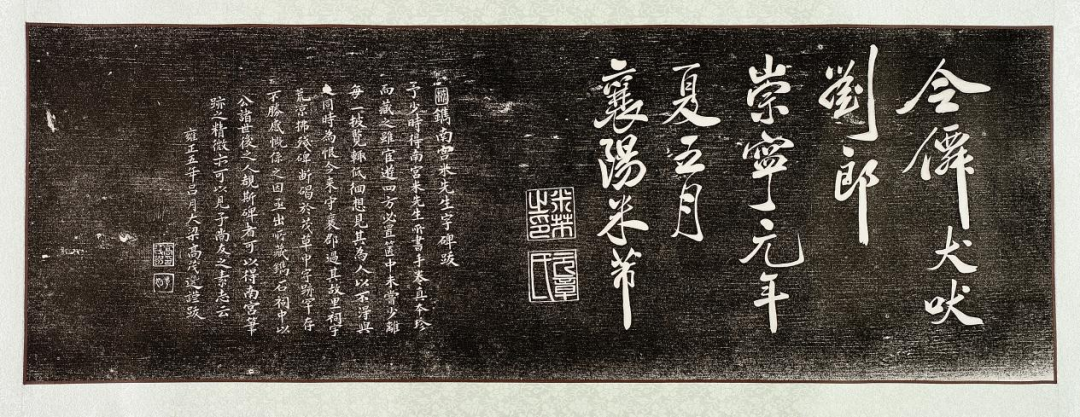 令僊犬吠
劉郎
崇寧元年
夏五月
襄陽米芾
米芾之印
元章氏
鐫南宮米先生字碑跋
予少時得南宮米先生所書手卷真本珍
而藏之雖宦遊四方必置篋中未嘗少離
每一披覽輒低徊想見其為人以不得與
之同時為恨今來守襄郡過其故里祠宇
荒涼拂殘碑斷碣於茂草中字蹟罕存
不勝感慨係之因亟出所藏鐫石祠中以
公諸世後之人覩斯碑者可以得南宮筆
跡之精微亦可以見予尚友之素志云
雍正五年呂月大梁高茂選證跋